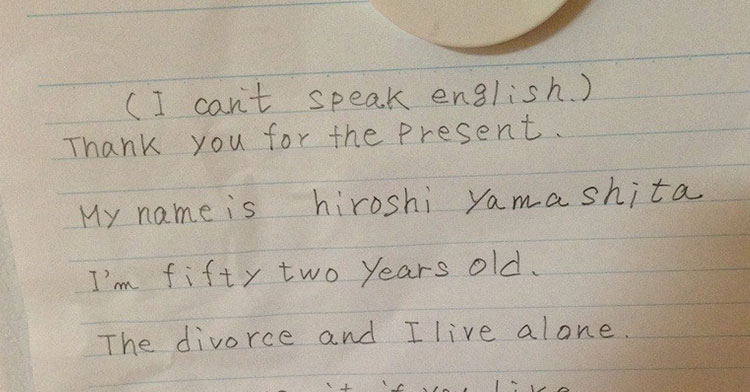 (I can't speak english.)
Thank you for the Present.
My name is hiroshi Yamashita
I'm fifty two years old.
The divorce and I live alone.
it if you like